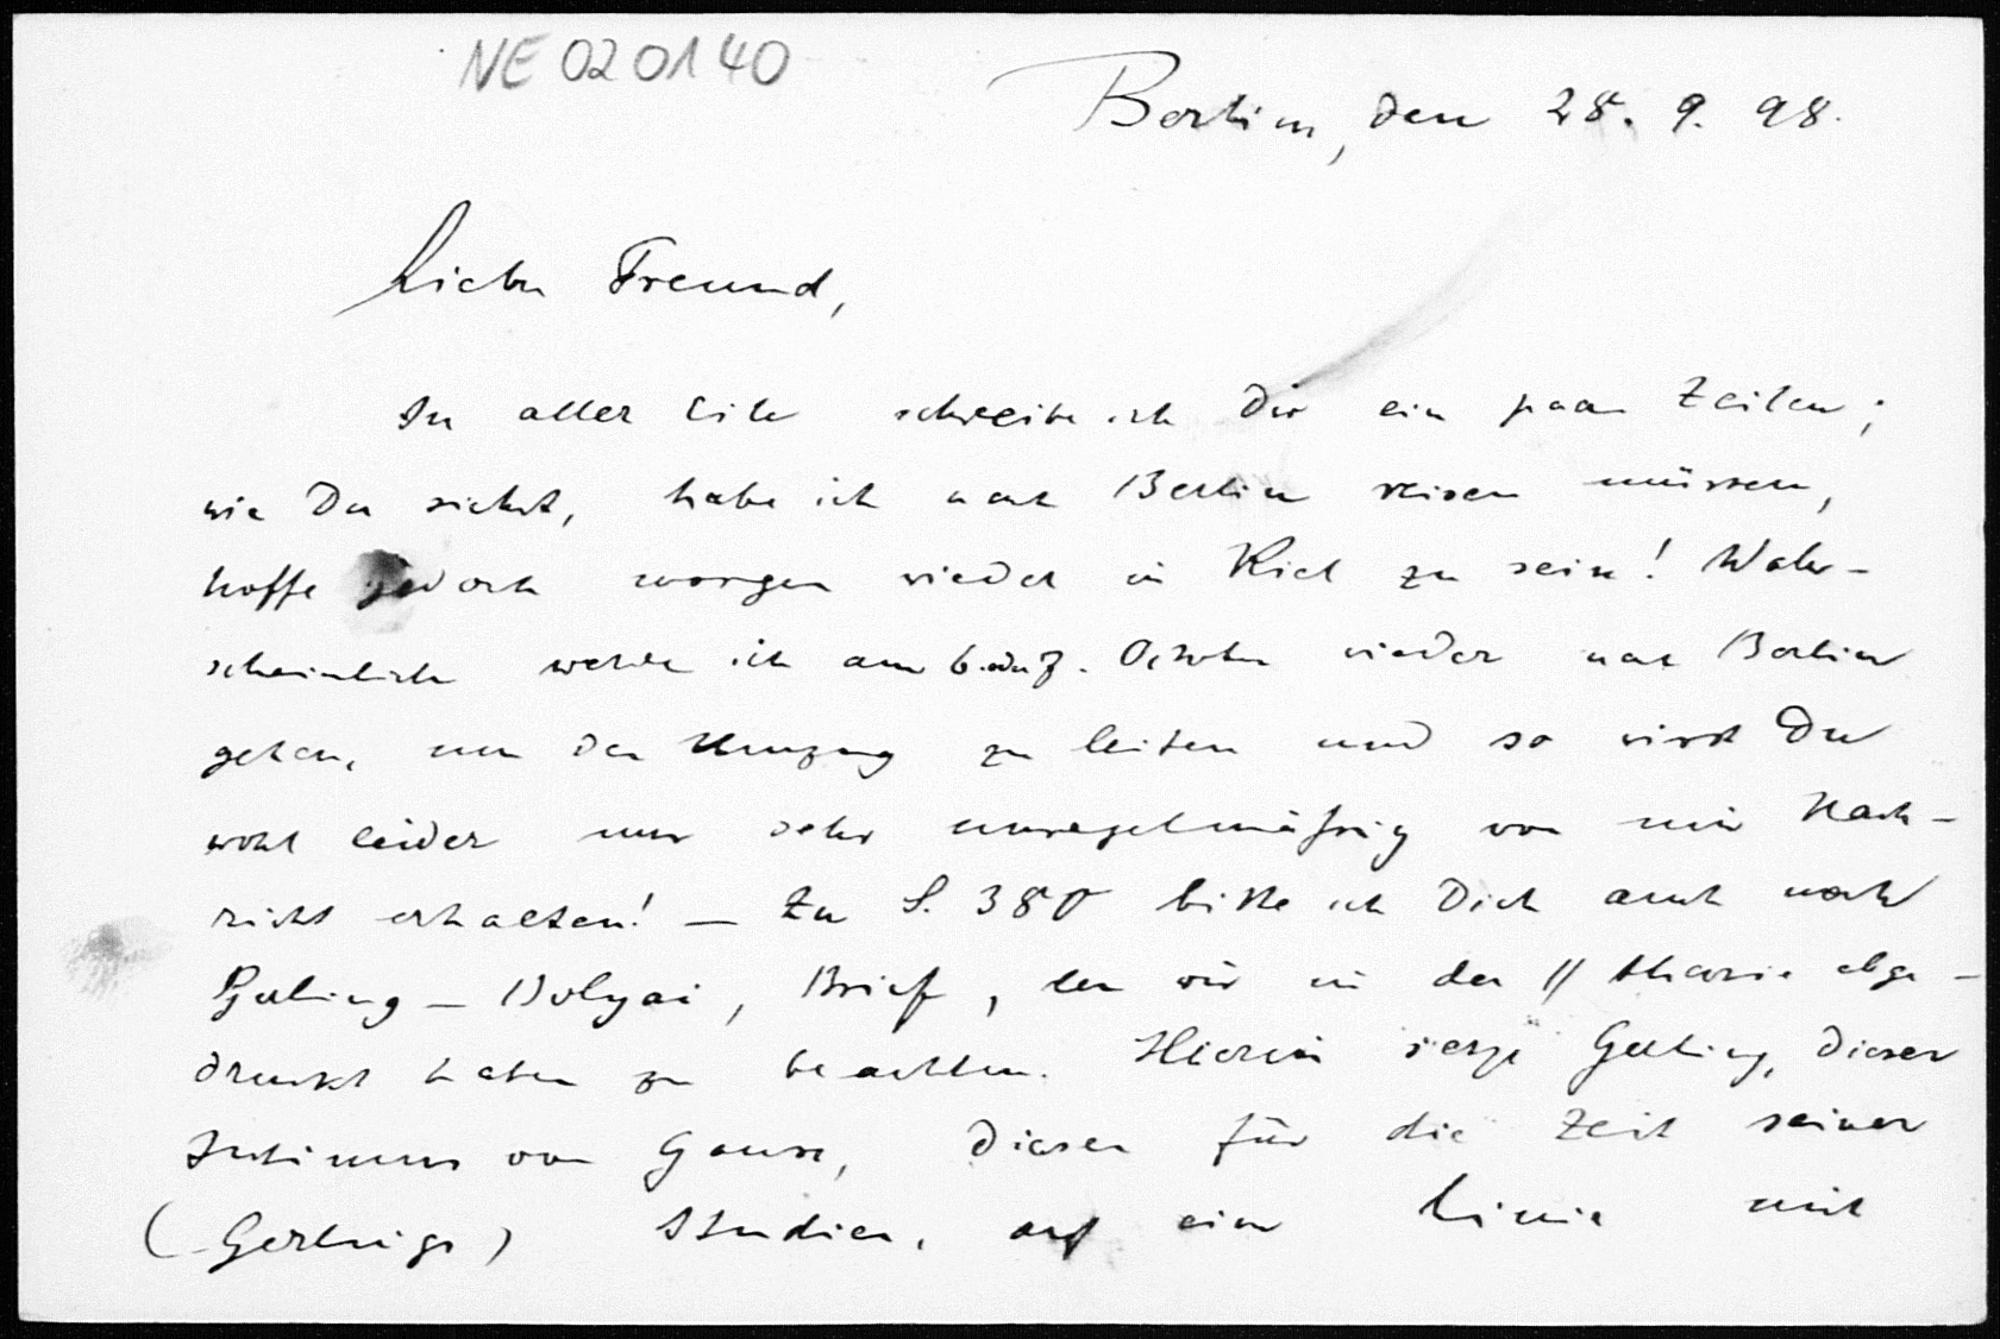 NE 020140
Berlin, den 28. 9. 98.
Lieber Freund,
In aller Eile schreibe ich Dir ein paar Zeilen;
wie Du siehst, habe ich nach Berlin reisen müssen,
hoffe jedoch morgen wieder in Kiel zu sein! Wahr-
scheinlich werde ich am 6. oder 7. October wieder nach Berlin
gehen, um den Umzug zu leiten und so wirst Du
wohl leider nur sehr unregelmäßig von mir Nach-
richt erhalten! — Zu S. 380 bitte ich Dich auch noch
Gerling – Bolyai, Brief, den wir in der // theorie abge-
druckt haben zu beachten. Hierin setzt Gerling, dieser
Intimus von Gauss, diesen für die Zeit seiner
(Gerlings) Studien, auf eine Linie mit